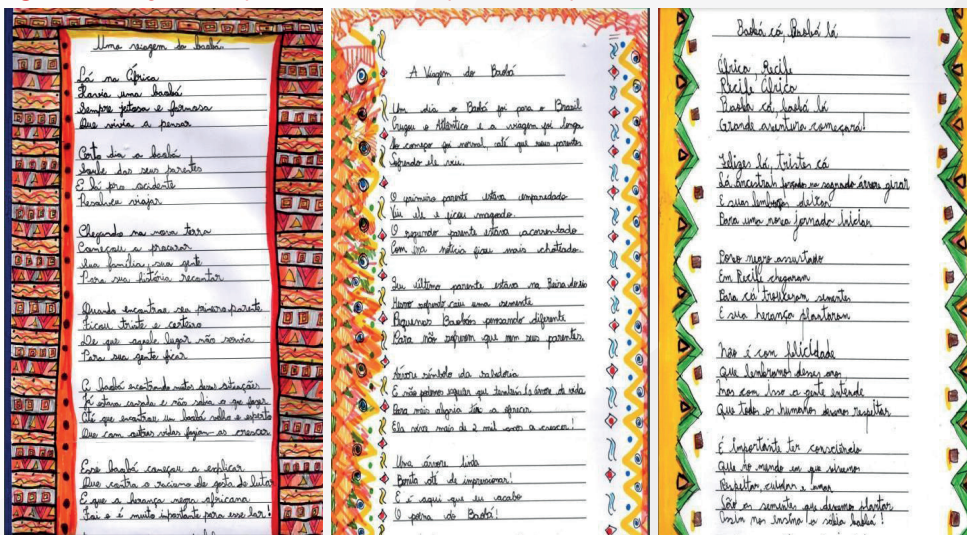 Uma viagem do baobá
Lá na África
Havia uma baobá
Sempre jeitosa e formosa
Que vivia a pensar
Certo dia a baobá
Soube dos seus parentes
E lá pro ocidente
Resolveu viajar
Chegando na nova terra
Começou a procurar
Sua família, sua gente
Para sua história recontar
Quando encontrou seu primeiro parente
Ficou triste e certeiro
De que aquele lugar não servia
Para sua gente ficar
O baobá encontrando outras duas situações
Já estava cansado e não sabia o que fazer
Até que encontrou um baobá sábio e esperto
Que com outras vidas faziam as crescer
Esse baobá começou a explicar
Que contra o racismo ele gosta de lutar
E que a herança negra africana
é muito importante para esse lar!
A Viagem do Baobá
Um dia o Baobá foi para o Brasil
Cruzou o Atlântico e a viagem foi longa
No começo foi normal, até que seus parentes
Sofrendo ele viu.
O primeiro parente estava emparedado
Viu ele e ficou magoado.
O segundo parente estava acorrentado
Com essa notícia ficou mais chateado.
Seu último parente estava na Beira do rio
Nesse segundo caiu uma semente
Pequenos Baobás pensando diferente
Para não sofrerem que nem seus parentes.
Árvore símbolo da sabedoria
E não podemos esquecer que também da árvore da vida
Para mais alegria a oferecer
Ela vive mais de 2 mil anos a crescer!
Uma árvore linda
Bonita até de impressionar!
E é aqui que eu acabo
O poema do Baobá!
Baobá cá, Baobá lá
África, Recife
Recife África
Baobá cá, baobá lá
Grande aventura começará!
Felizes lá, tristes cá
Lá ancestral fazendo no sagrado árvore girar
E suas lembranças deixar
Para uma nova jornada Iniciar
Povo negro assustado
Em Recife chegaram
Para cá trouxeram sementes
E sua herança plantaram
Não é com felicidade
Que lembramos desses anos
Mas com isso a gente entende
Que todos os humanos devemos respeitar
É importante ter consciência
Que no mundo em que vivemos
Respeitar, cuidar e amar
São as sementes que devemos plantar
Assim nos ensina o sábio baobá!